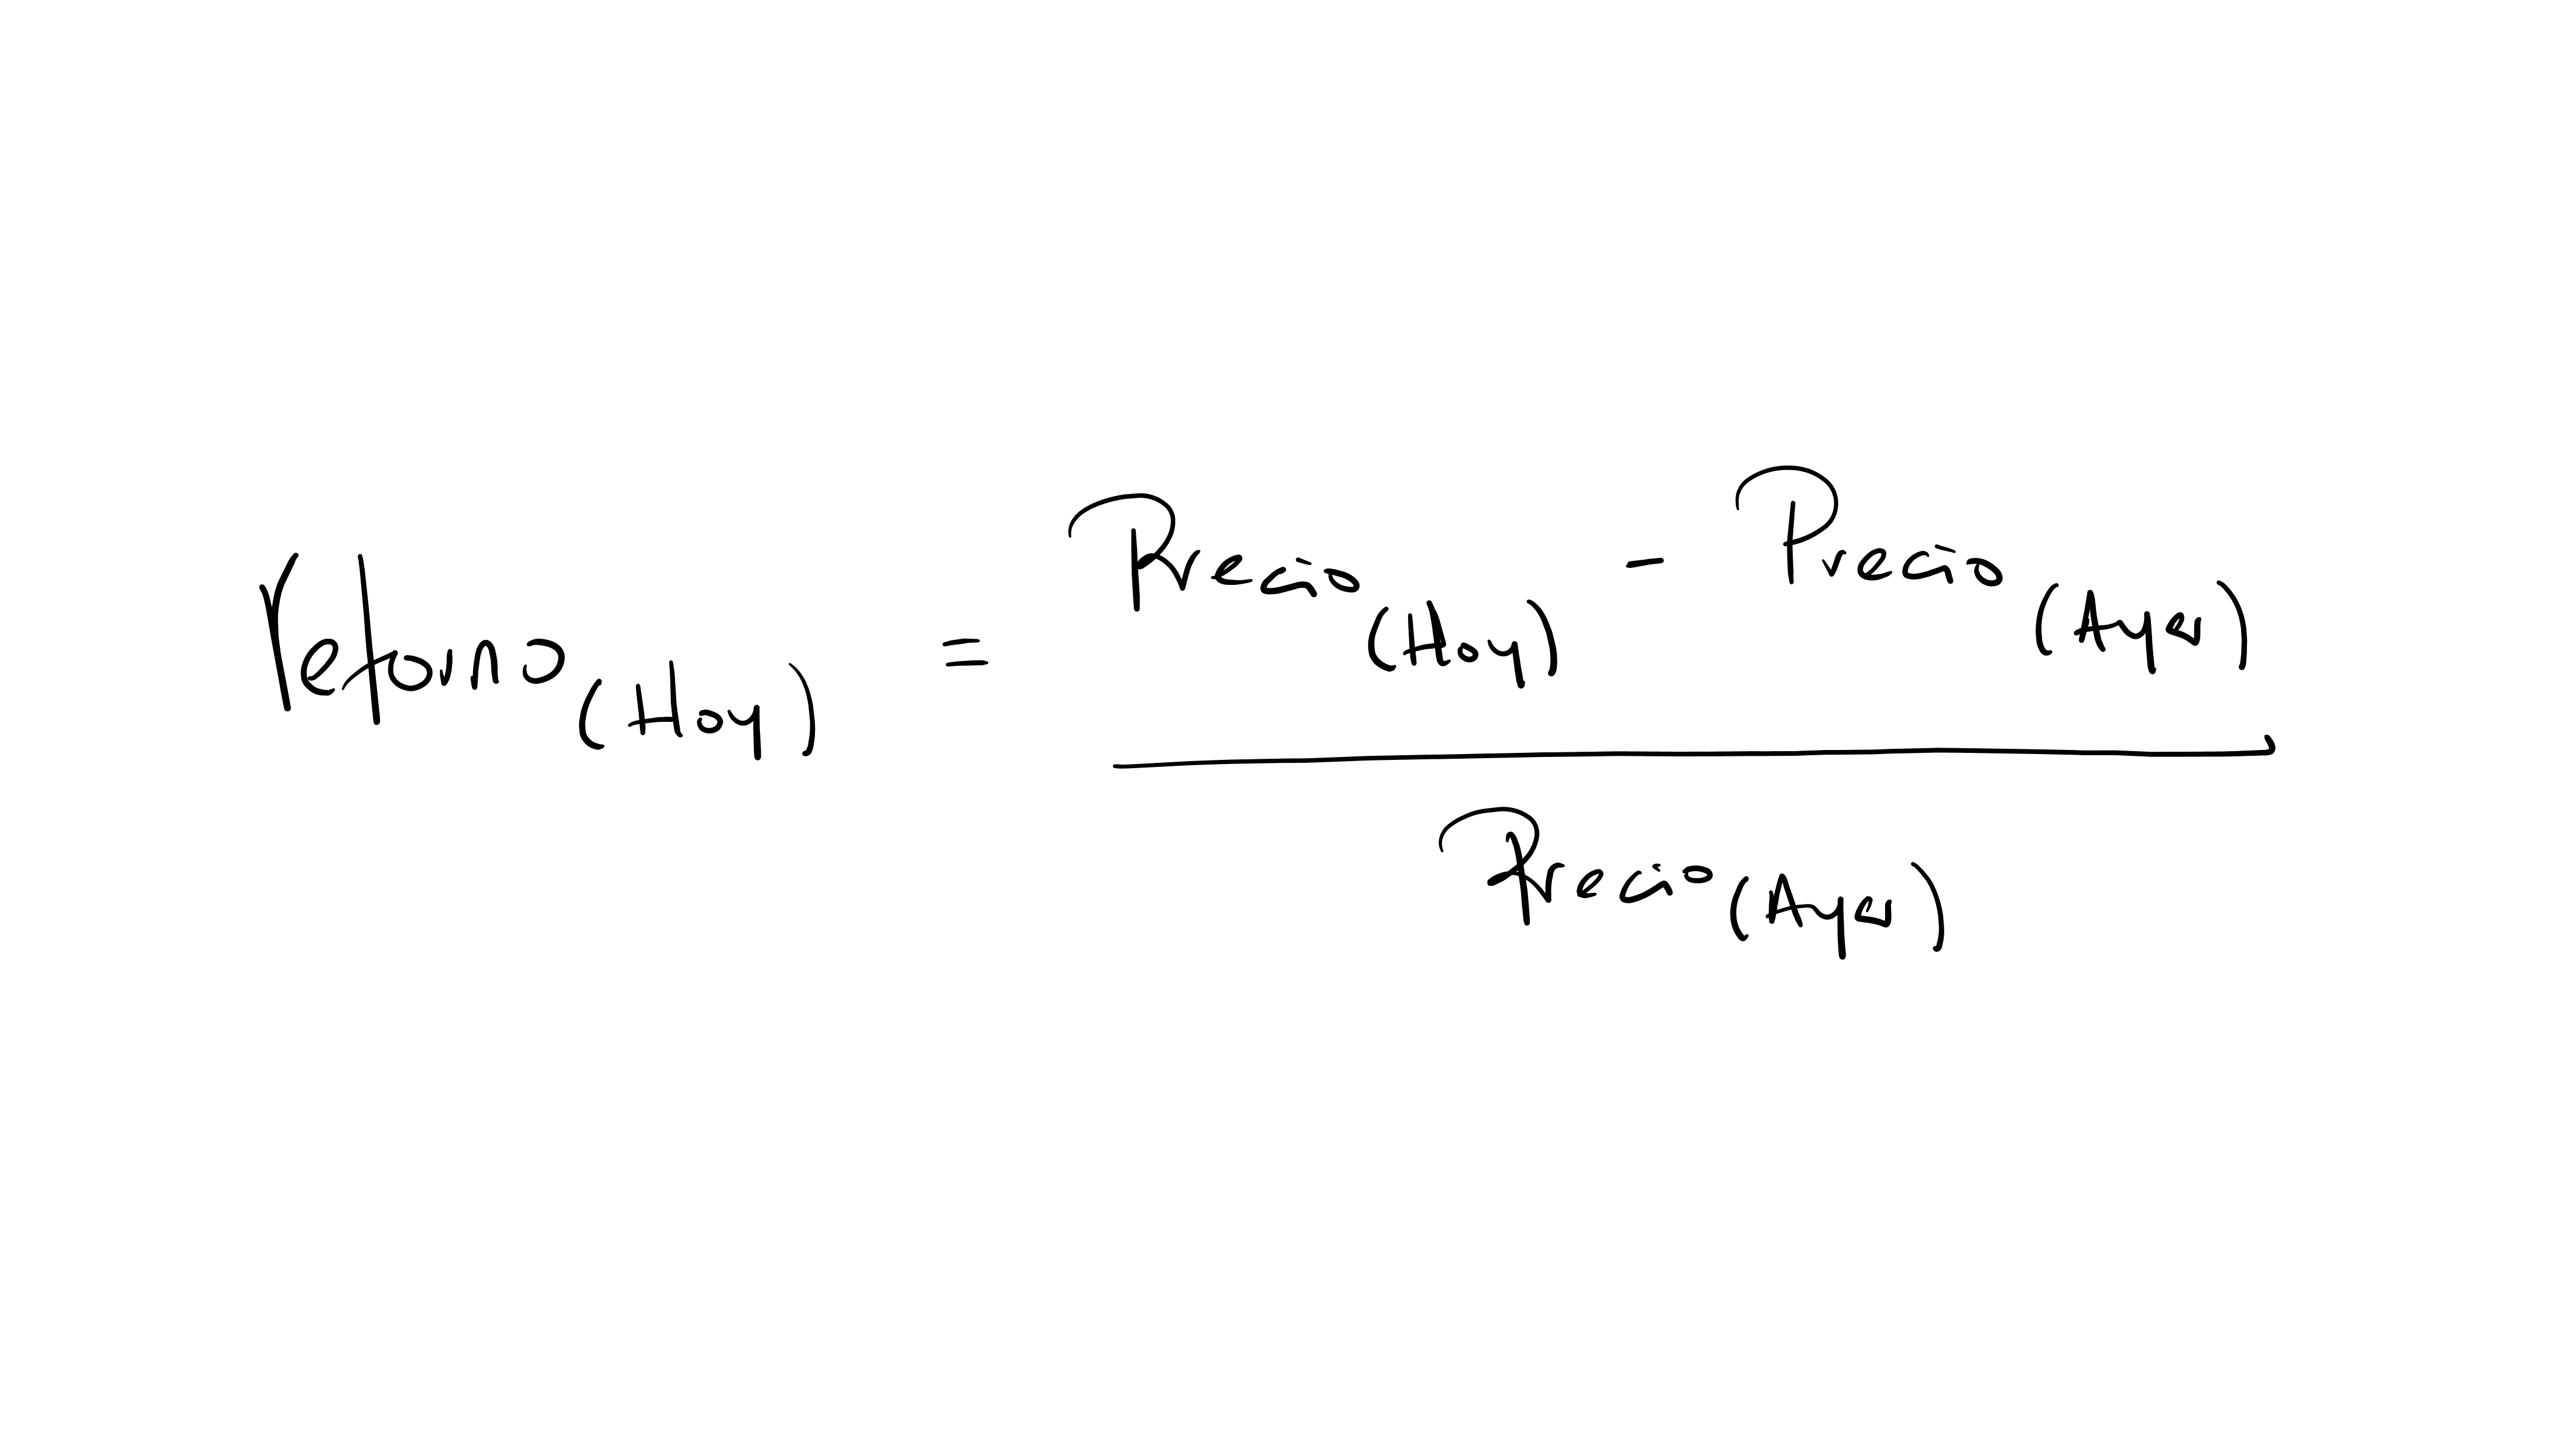 Retorno(Hoy) = Precio(Hoy) - Precio(Ayer)
Precio(Ayer)